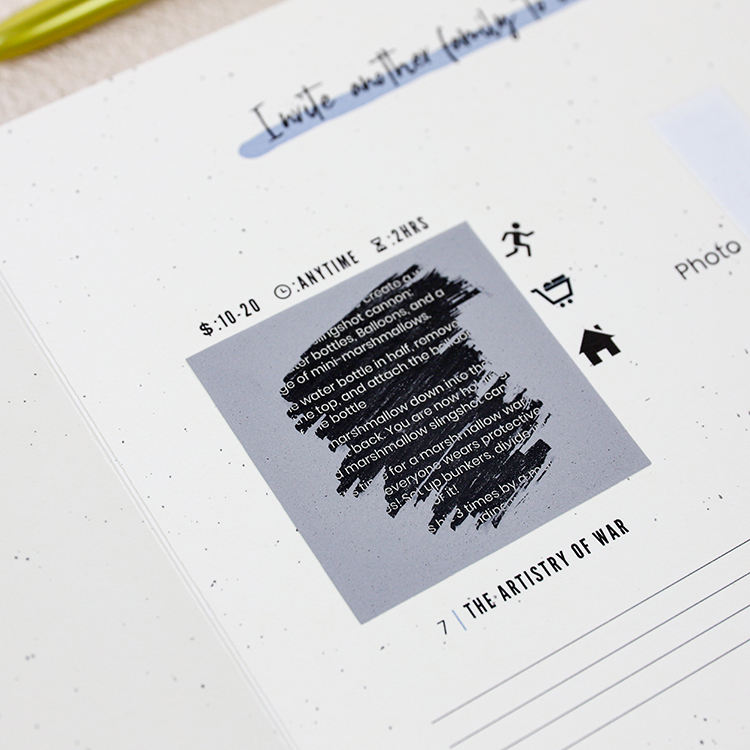 Invite another family to
$:10-20 :ANYTIME :2HRS
create a
slingshot cannon:
bottles, Balloons, and a
of mini-marshmallows.
water bottle in half, remove
the top, and attach the
bottle
marshmallow down into the
back. You are now
marshmallow slingshot
for a marshmallow war
everyone wears protective
Set up bunkers, divide
of it!
3 times by a
Photo
7 | THE ARTISTRY OF WAR